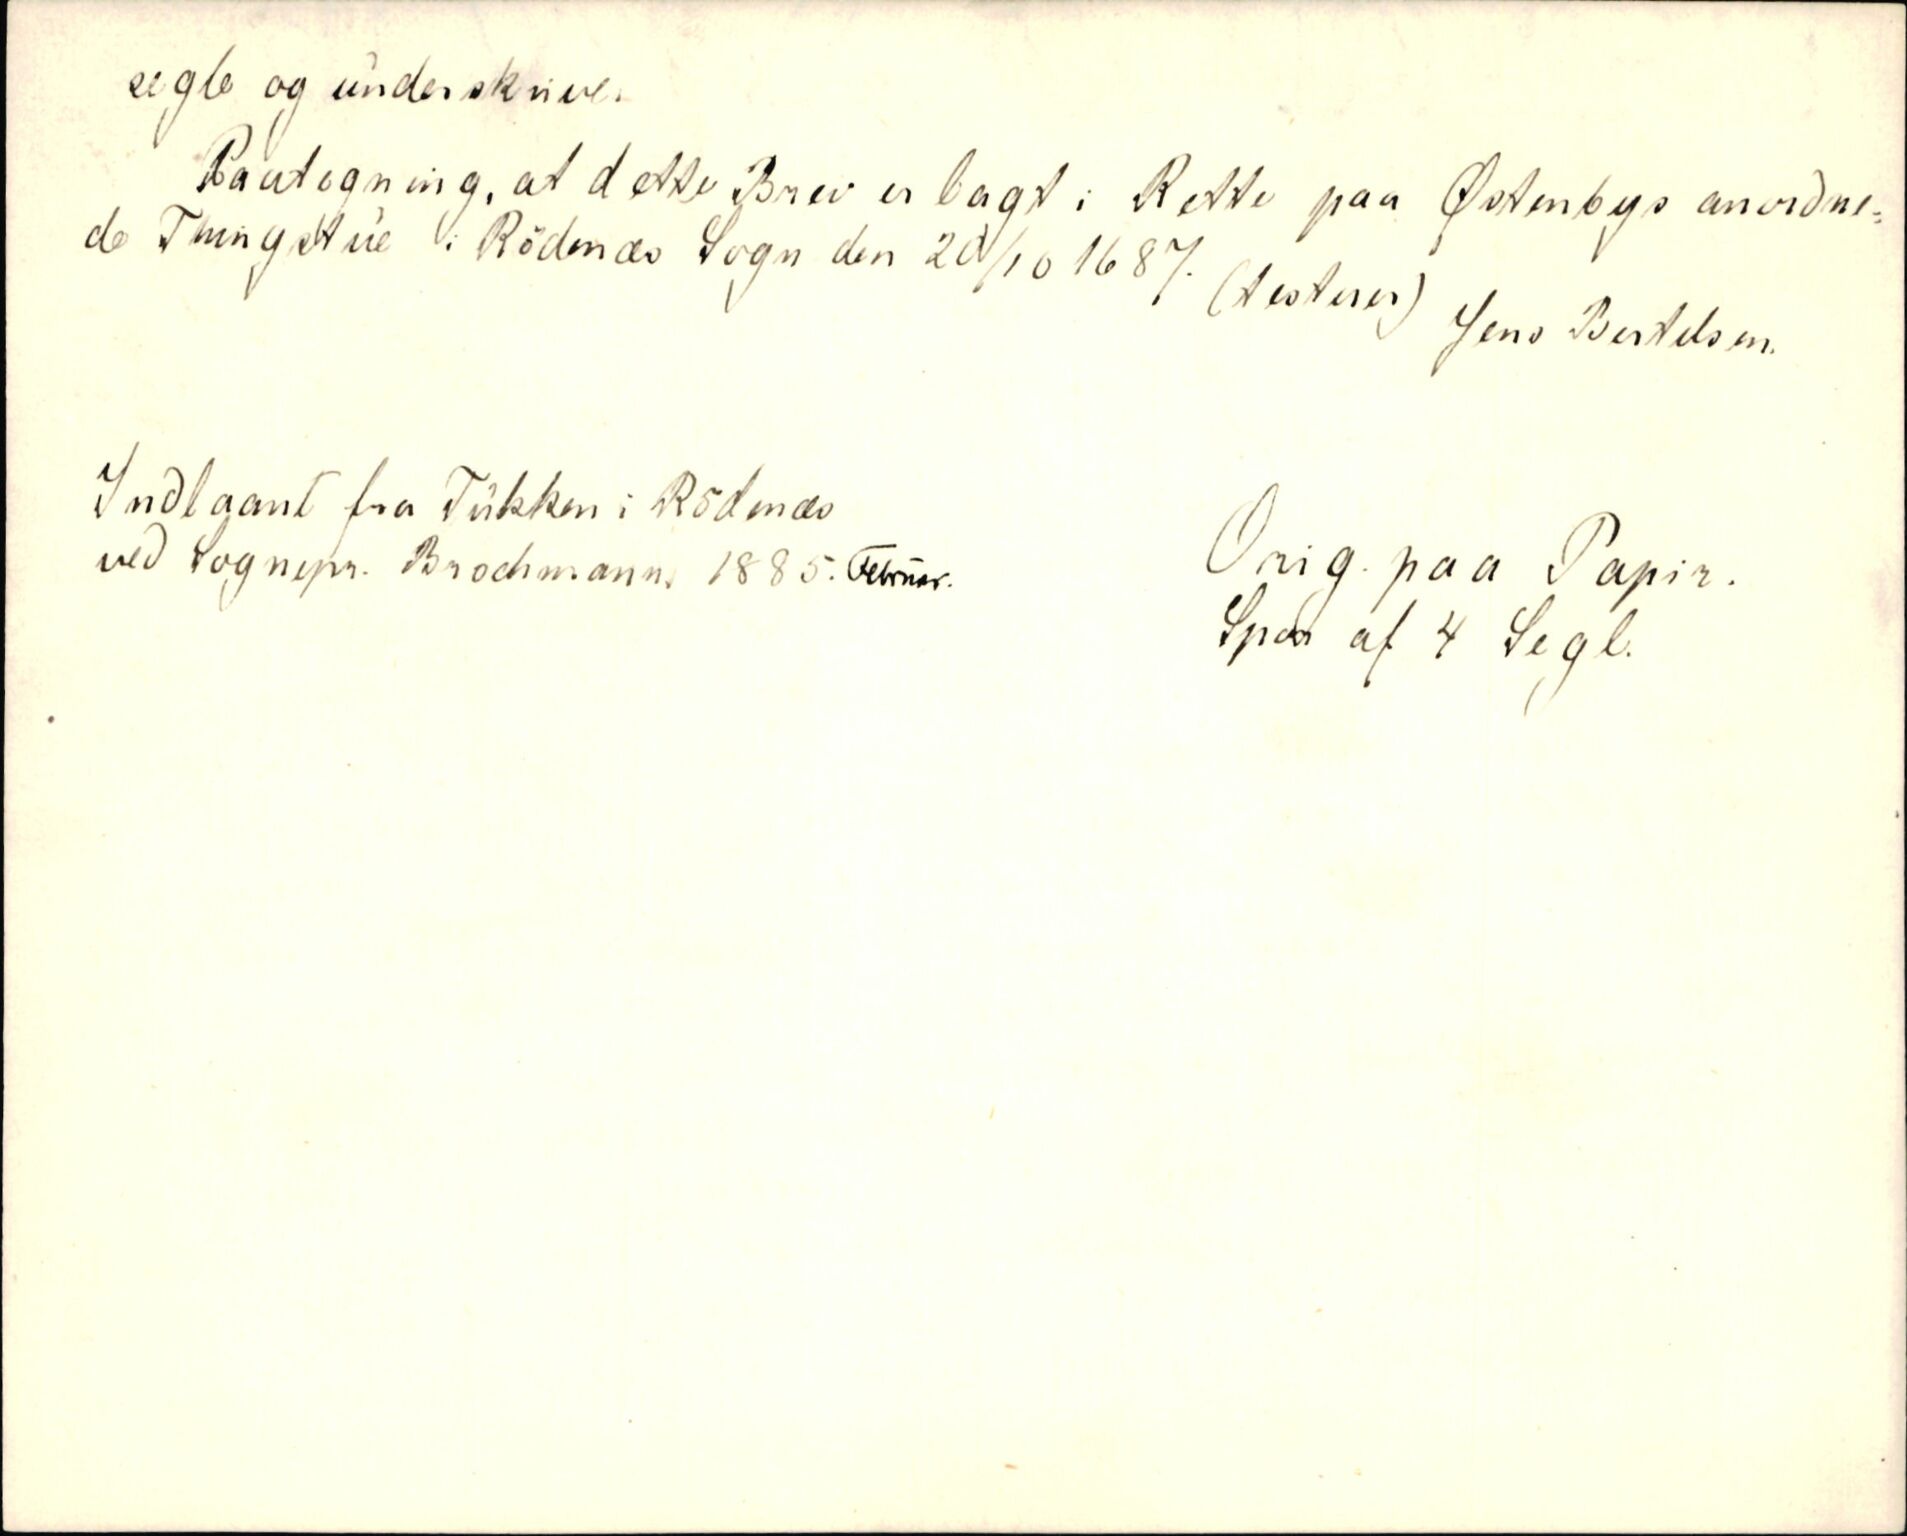 segle og underskriver.
Paategning, at dette Brev er lagt i Rette paa Østenbys anordne=
de Thingstue i Rödenæs Sogn den 20/10 1687.
(testerer)
Jens Bertelsen.
Indlaant fra Tükken i Rödenæs
ved Sognepr. Brochmann, 1885. Februar.
Orig. paa Papir.
Spor af 4 Segl.